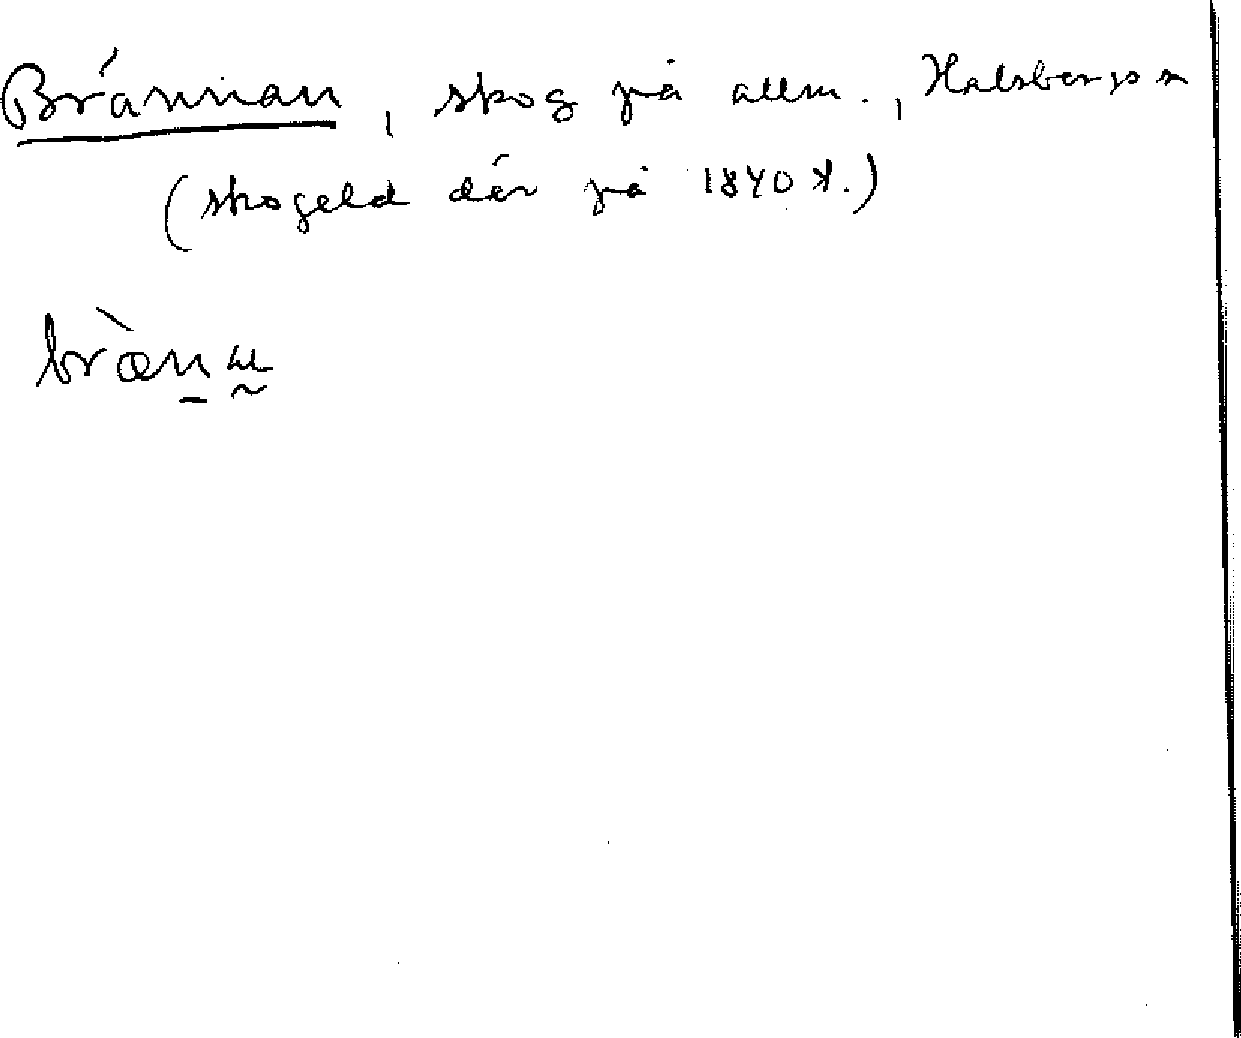 Brännan, skog på allm., Halsbergs sn
(skogeld där på 1840 t.)
bræn